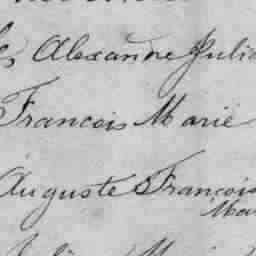 Alexanne Julie
Francois Marie
Auguste Francois
Mar